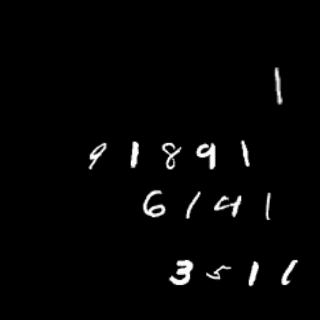 1
91891
6141
3511